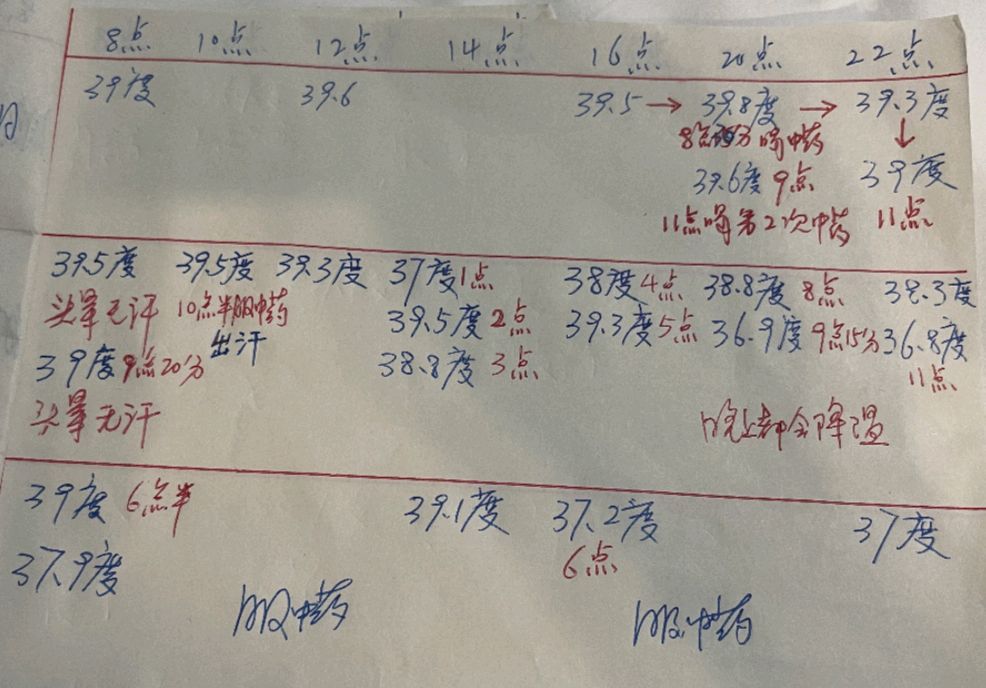 8点 10点 12点 14点 16点 20点 22点
日
39度 39.6 39.5 → 39.8度 → 39.3度
8点 分喝中药 ↓
39.6度 9点 39度
11点喝第2次中药 11点
39.5度 39.5度 39.3度 37度1点 38度4点 38.8度 8点 38.3度
头晕无汗 10点半服中药 39.5度 2点 39.3度5点 36.9度 9点15分 36.8度
39度 9点20分 出汗 38.8度 3点 11点
头晕无汗 晚上都会降温
39度 6点半 39.1度 37.2度 37度
37.9度 6点
服中药 服中药